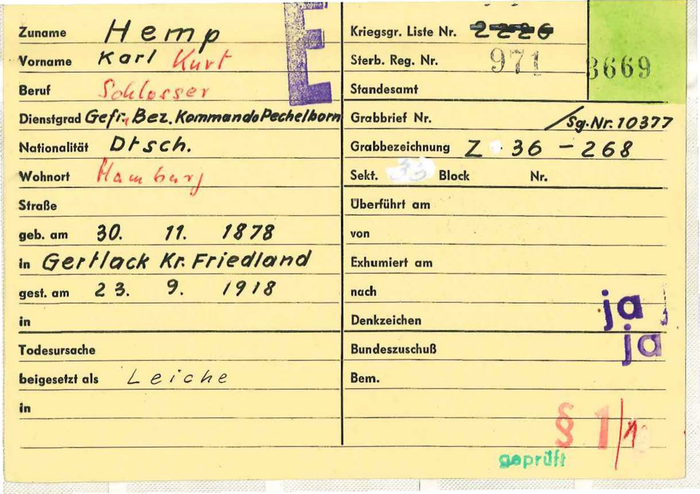 E
Zuname Hemp
Vorname Karl Kurt
Beruf Schlosser
Dienstgrad Gefr., Bez. Kommando Pechelborn
Nationalität Dtsch.
Wohnort Hamburg
Straße
geb. am 30. 11. 1878
in Gertlack Kr. Friedland
gest. am 23. 9. 1918
in
Todesursache
beigesetzt als Leiche
in
Kriegsgr. Liste Nr. 2226
Sterb. Reg. Nr. 971 3669
Standesamt
Grabbrief Nr. /Sg. Nr. 10377
Grabbezeichnung Z 36 - 268
Sekt. Block Nr.
Überführt am
von
Exhumiert am
nach
Denkzeichen ja
Bundeszuschuß ja
Bem.
§ 1/1
geprüft